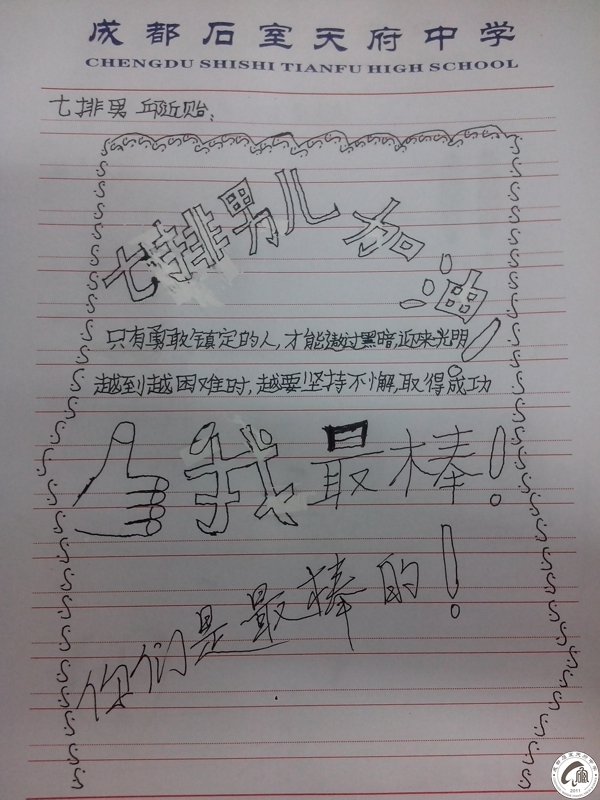 成都石室天府中学
CHENGDU SHISHI TIANFU HIGH SCHOOL
七排男 邱近贻:
七排男儿加油!
只有勇敢镇定的人,才能熬过黑暗,迎来光明
越到越困难时,越要坚持不懈,取得成功
我最棒!
你们是最棒的!
2011